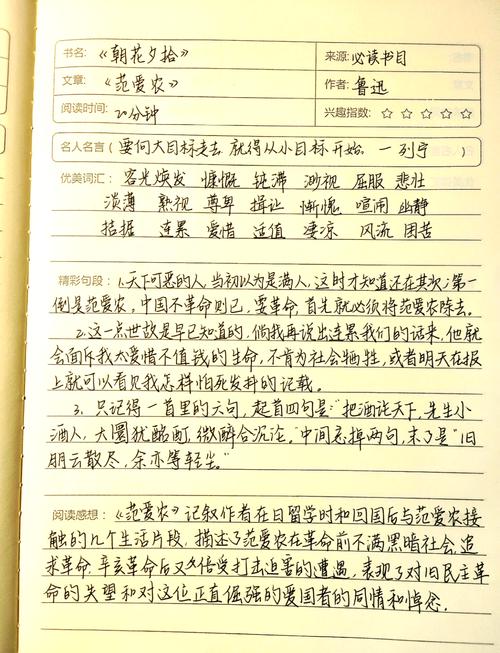 书名:《朝花夕拾》 来源:必读书目
文章:《范爱农》 作者:鲁迅
阅读时间: 20分钟 兴趣指数:☆☆☆☆☆
名人名言(要向大目标走去 就得从小目标开始. 一列宁 )
优美词汇: 容光焕发 慷慨 钝滞 渺视 屈服 悲壮
淡薄 熟视 尊卑 揖让 惭愧 喧闹 幽静
拮据 连累 爱惜 适值 凄凉 风流 困苦
精彩句段:1.天下可恶的人,当初以为是满人,这时才知道还在其次;第一
倒是范爱农。中国不革命则已,要革命,首先就必须将范爱农除去。
2.这一点世故是早已知道的,倘我再说出连累我们的话来,他就
会面斥我太爱惜不值钱的生命,不肯为社会牺牲,或者明天在报
上就可以看见我怎样怕死发抖的记载。
3、只记得一首里的六句,起首四句是:"把酒论天下,先生小
酒人,大圜犹酩酊,微醉合沉沦。"中间忘掉两句,末了是"旧
朋云散尽,余亦等轻尘。"
阅读感想:《范爱农》记叙作者在日留学时和回国后与范爱农接
触的几个生活片段,描述了范爱农在革命前不满黑暗社会,追
求革命,辛亥革命后又备受打击迫害的遭遇,表现了对旧民主革
命的失望和对这位正直倔强的爱国者的同情和悼念.